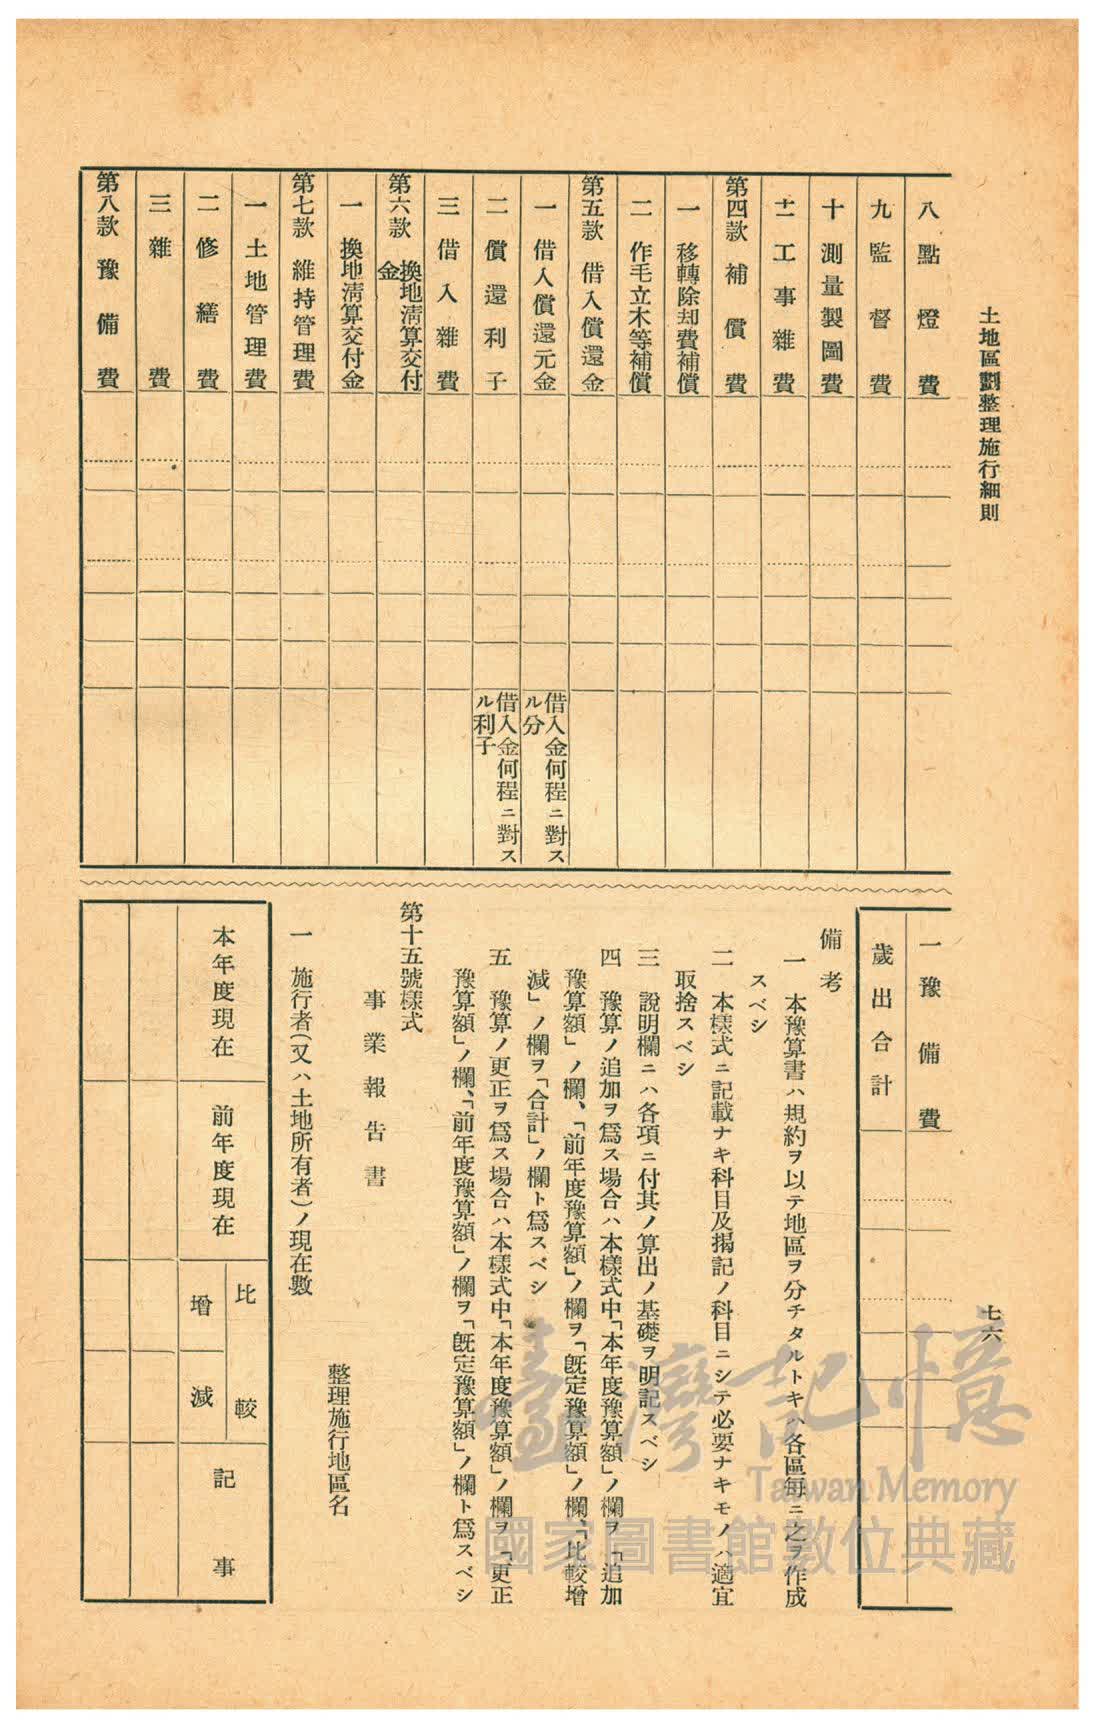 土地區劃整理施行細則
七六
八 點燈費
九 監督費
十 測量製圖費
十一 工事雜費
第四款 補償費
一 移轉除却費補償
二 作毛立木等補償
第五款 借入償還金
一 借入償還元金
借入金何程ニ對ス
ル分
二 償還利子
借入金何程ニ對ス
ル利子
三 借入雜費
第六款 換地淸算交付
金
一 換地淸算交付金
第七款 維持管理費
一 土地管理費
二 修繕費
三 雜費
第八款 豫備費
一 豫備費
歲出合計
備考
一 本豫算書ハ規約ヲ以テ地區ヲ分チタルトキハ各區每ニ之ヲ作成
スベシ
二 本樣式ニ記載ナキ科目及揭記ノ科目ニシテ必要ナキモノハ適宜
取捨スベシ
三 說明欄ニハ各項ニ付其ノ算出ノ基礎ヲ明記スベシ
四 豫算ノ追加ヲ爲ス場合ハ本樣式中「本年度豫算額」ノ欄ヲ「追加
豫算額」ノ欄、「前年度豫算額」ノ欄ヲ「旣定豫算額」ノ欄、「比較增
減」ノ欄ヲ「合計」ノ欄ト爲スベシ
五 豫算ノ更正ヲ爲ス場合ハ本樣式中「本年度豫算額」ノ欄ヲ「更正
豫算額」ノ欄、「前年度豫算額」ノ欄ヲ「旣定豫算額」ノ欄ト爲スベシ
第十五號樣式
事業報告書
整理施行地區名
一 施行者(又ハ土地所有者)ノ現在數
本年度現在
前年度現在
比較
增
減
記事
臺灣記憶
Taiwan Memory
國家圖書館數位典藏